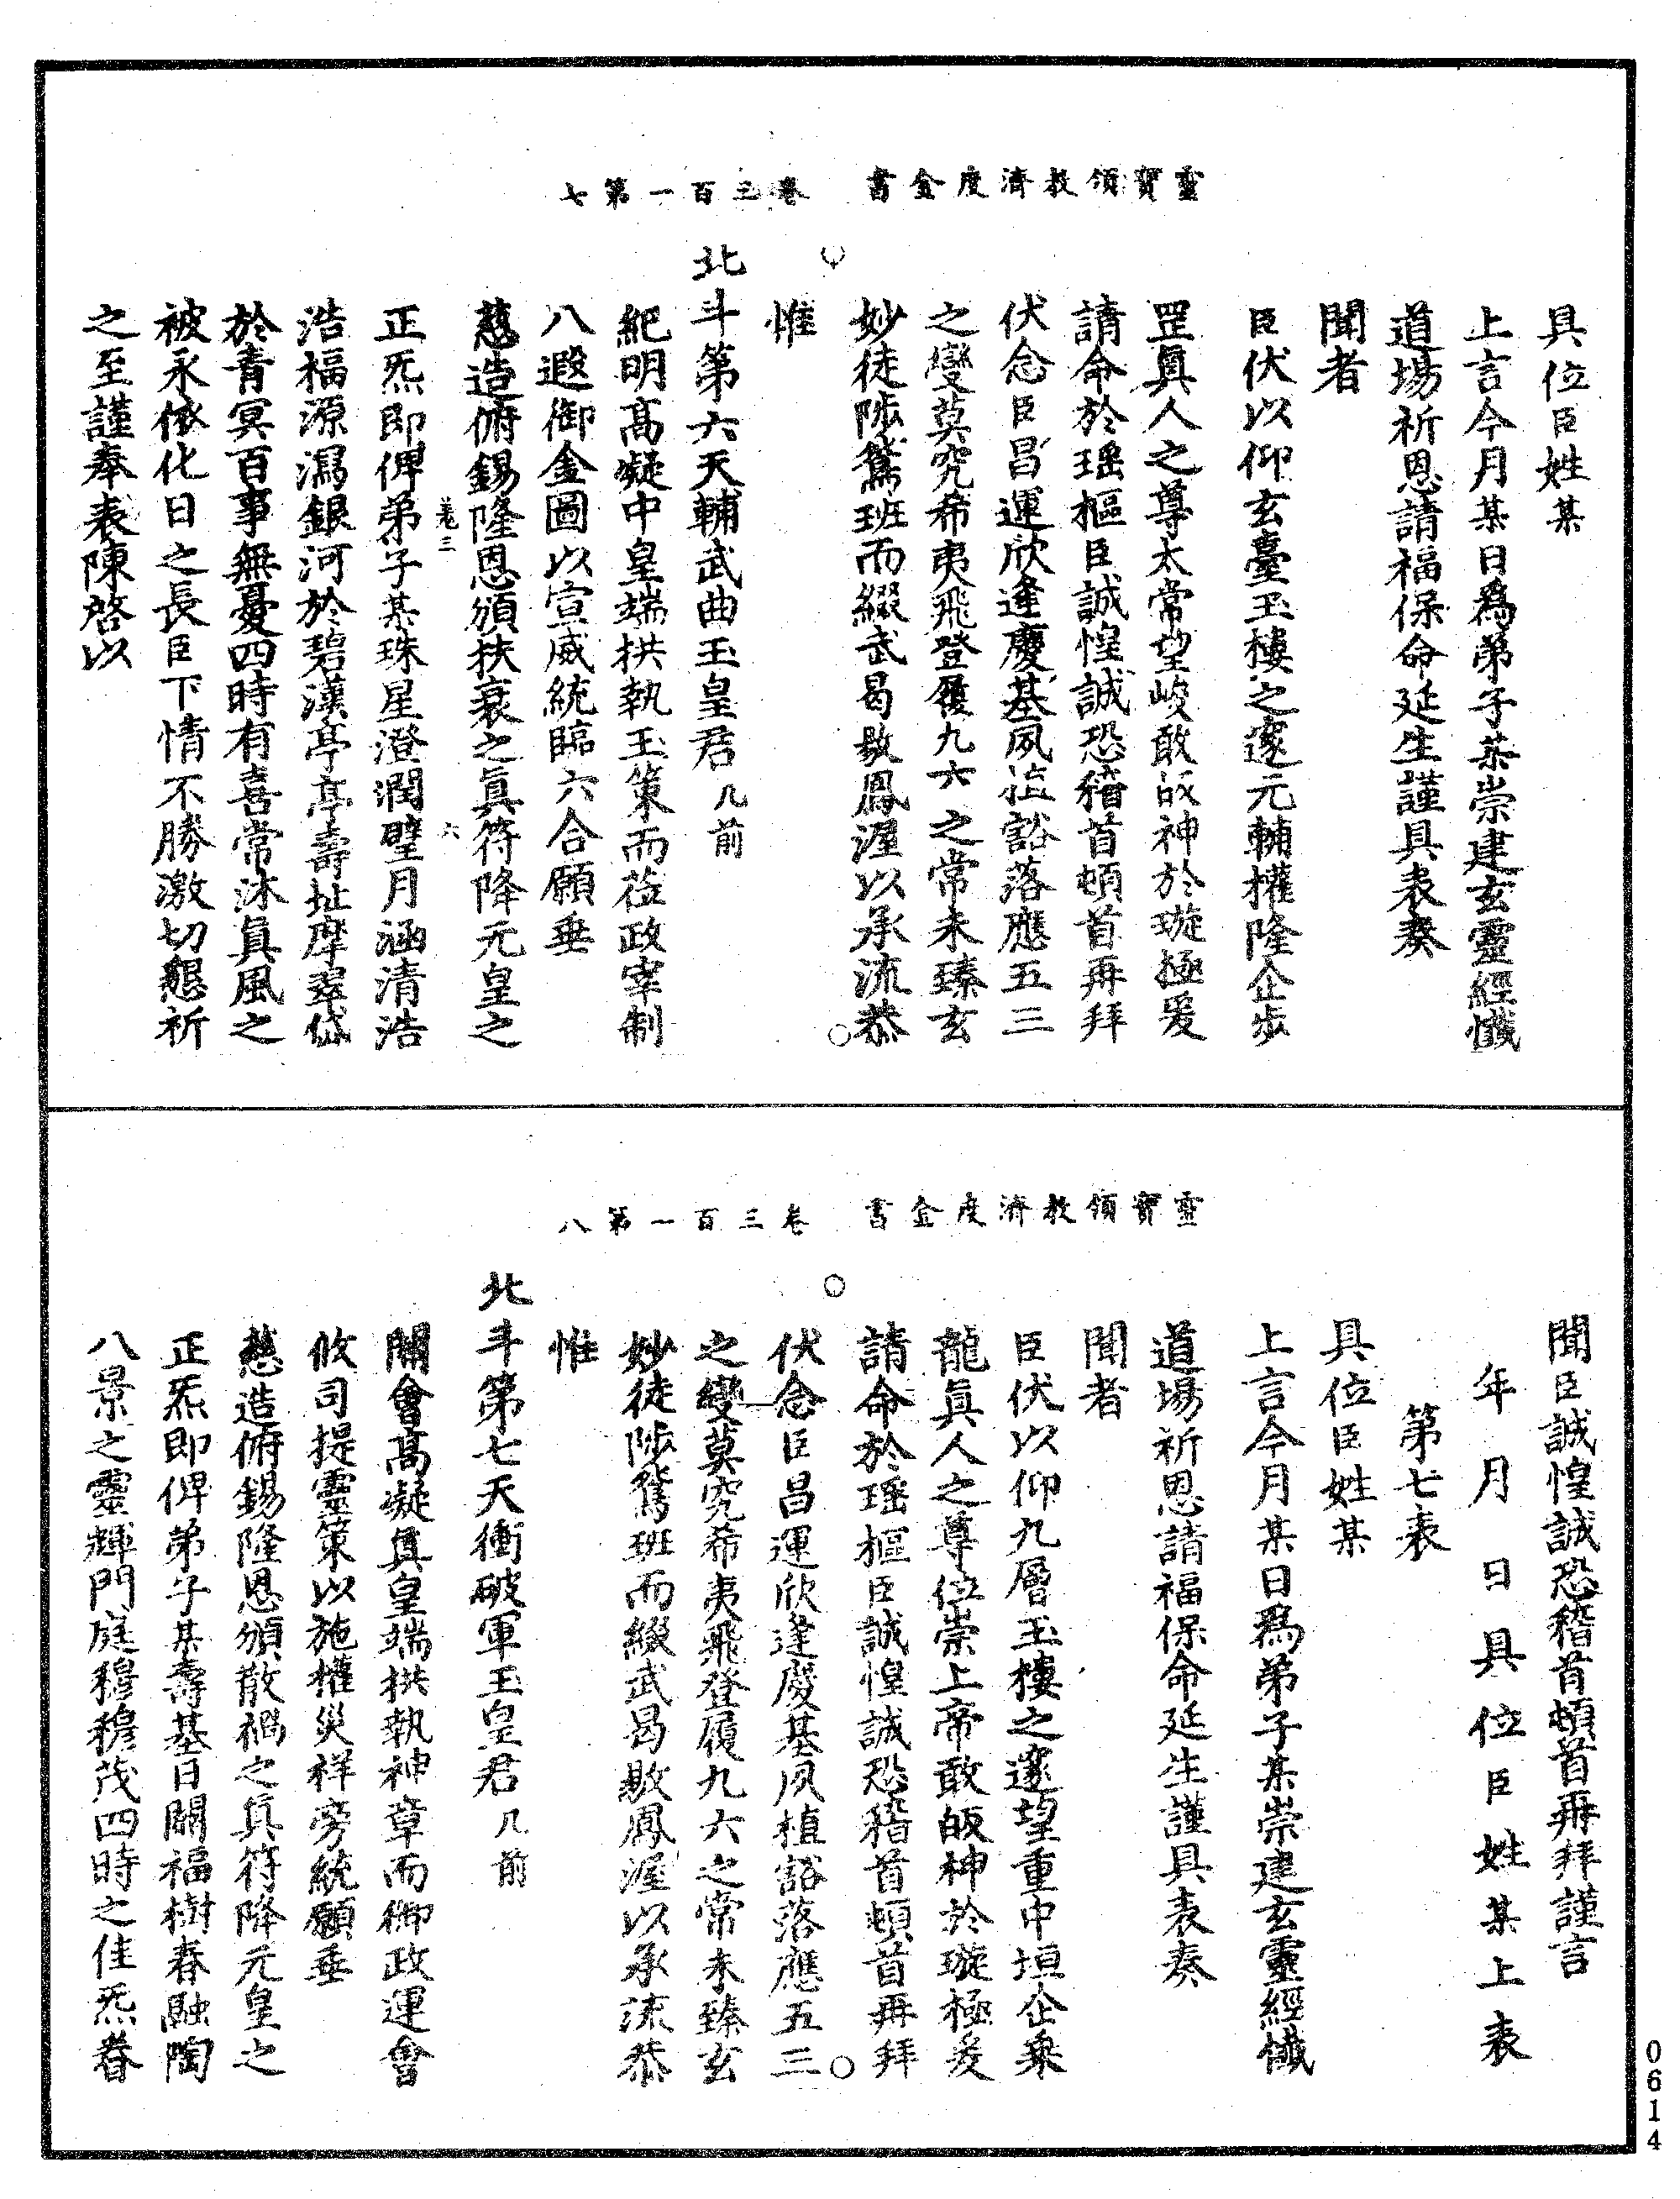 靈寶領教濟度金書　卷三百一第七
具位臣姓某
上言今月某日爲弟子某崇建玄靈經懺
道場祈恩請福保命延生謹具表奏
聞者
臣伏以仰玄臺玉樓之邃元輔權隆企步
罡眞人之尊太常望峻敢皈神於璇極爰
請命於瑶樞臣誠惶誠恐稽首頓首再拜
伏念臣昌運欣逢慶基夙植豁落應五三
之變莫究希夷飛登履九六之常未臻玄
妙徒陟鵞班而綴武曷敭鳳渥以承流恭
惟
北斗第六天輔武曲玉皇君几前
紀明高凝中皇端拱執玉策而莅政宰制
八遐御金圖以宣威統臨六合願垂
慈造俯錫隆恩頒扶衰之眞符降元皇之
卷三　六
正炁即俾弟子某珠星澄潤璧月涵清浩
浩福源瀉銀河於碧漢亭亭壽址摩翠岱
於青冥百事無憂四時有喜常沐眞風之
被永依化日之長臣下情不勝激切懇祈
之至謹奉表陳啓以
靈寶領教濟度金書　卷三百一第八
聞臣誠惶誠恐稽首頓首再拜謹言
年　月　日具位臣姓某上表
第七表
具位臣姓某
上言今月某日爲弟子某崇建玄靈經懺
道場祈恩請福保命延生謹具表奏
聞者
臣伏以仰九層玉樓之邃望重中垣企乗
龍眞人之尊位崇上帝敢皈神於璇極爰
請命於瑶樞臣誠惶誠恐稽首頓首再拜
伏念臣昌運欣逢慶基夙植豁落應五三
之變莫究希夷飛登履九六之常未臻玄
妙徒陟鵞班而綴武曷敭鳳渥以承流恭
惟
北斗第七天衝破軍玉皇君几前
關會高凝眞皇端拱執神章而御政運會
攸司提靈策以施權災祥旁統願垂
慈造俯錫隆恩頒散禍之眞符降元皇之
正炁即俾弟子某壽基日闢福樹春融陶
八景之靈輝門庭穆穆茂四時之佳炁眷
0614